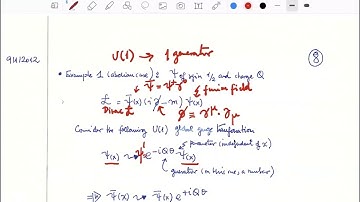 9/1/2012
U(1) → 1 generator
⑧
• Example 1 (abelian case): Ψ of spin 1/2 and charge Q
Ψ̄ = Ψ⁺γ⁰ fermion field
ℒ = Ψ̄(x) (i∂̸ - m) Ψ(x)
Dirac ∂̸ ≡ γ^μ ∂_μ
Consider the following U(1) global gauge transformation
parameter (independent of x)
Ψ(x) ⇝ Ψ' = e^{-iQθ} Ψ(x)
generator (in this case, a number)
⇒ Ψ̄(x) ⇝ Ψ̄(x) e^{+iQθ}